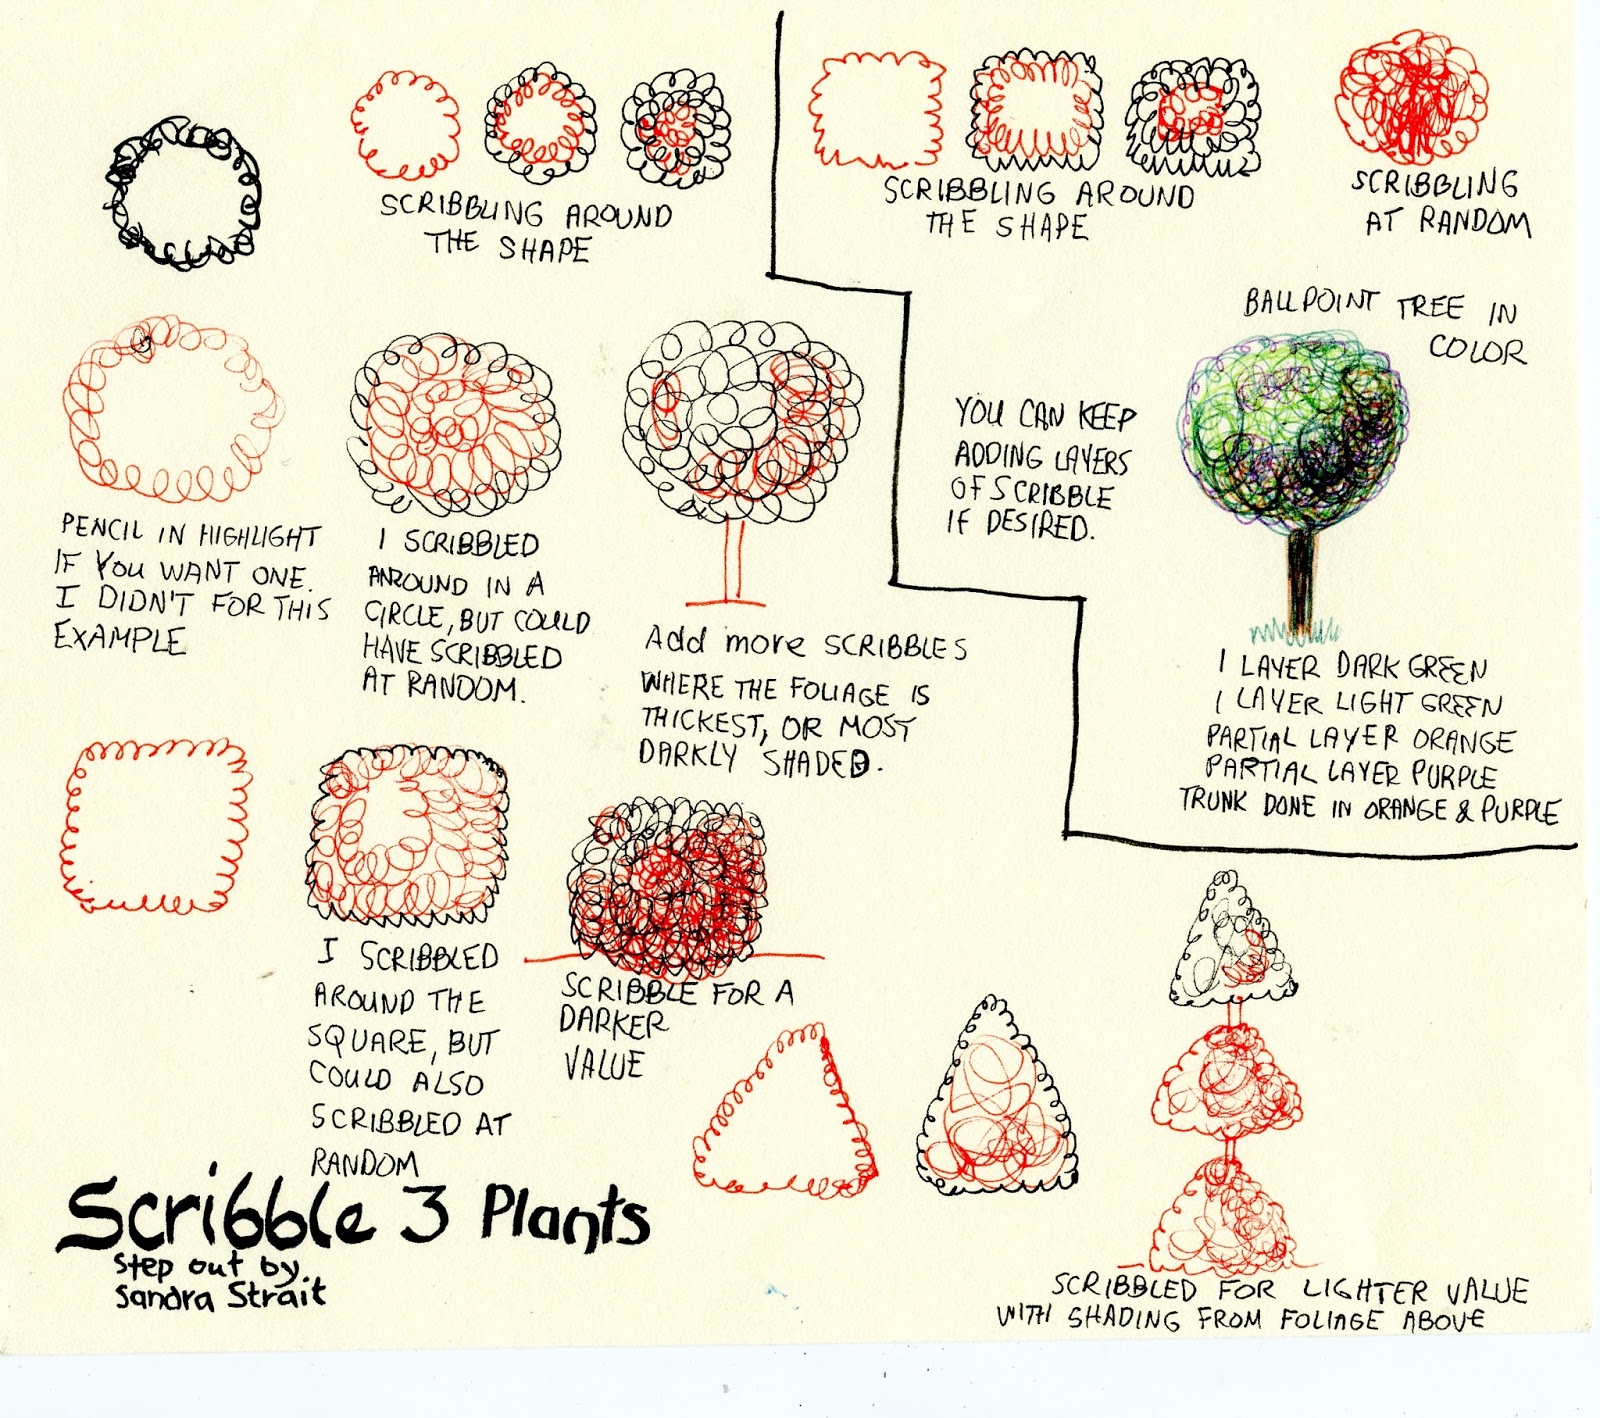 SCRIBBLING AROUND
THE SHAPE
SCRIBBLING AROUND
THE SHAPE
SCRIBBLING
AT RANDOM
BALLPOINT TREE IN
COLOR
YOU CAN KEEP
ADDING LAYERS
OF SCRIBBLE
IF DESIRED.
PENCIL IN HIGHLIGHT
IF YOU WANT ONE.
I DIDN'T FOR THIS
EXAMPLE
I SCRIBBLED
AROUND IN A
CIRCLE, BUT COULD
HAVE SCRIBBLED
AT RANDOM.
Add more SCRIBBLES
WHERE THE FOLIAGE IS
THICKEST, OR MOST
DARKLY SHADED.
1 LAYER DARK GREEN
1 LAYER LIGHT GREEN
PARTIAL LAYER ORANGE
PARTIAL LAYER PURPLE
TRUNK DONE IN ORANGE & PURPLE
I SCRIBBLED
AROUND THE
SQUARE, BUT
COULD ALSO
SCRIBBLED AT
RANDOM
SCRIBBLE FOR A
DARKER
VALUE
Scribble 3 Plants
Step out by
Sandra Strait
SCRIBBLED FOR LIGHTER VALUE
WITH SHADING FROM FOLIAGE ABOVE